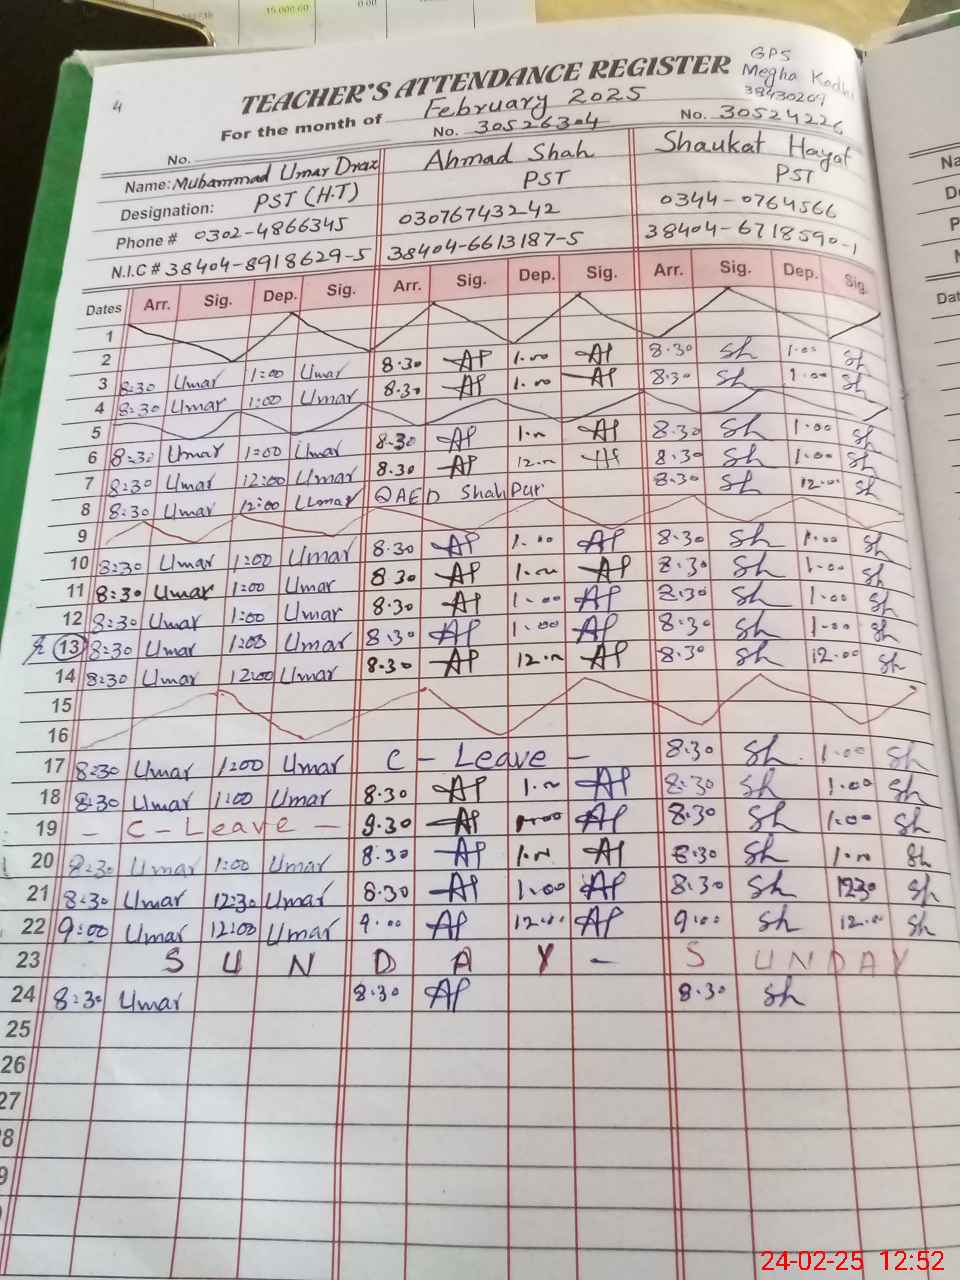 15,000.00
0.00
GPS
Megha Kadhi
38430209
4
TEACHER'S ATTENDANCE REGISTER
For the month of February 2025
No. No. 30526304 No. 30524226
Name: Muhammad Umar Draz Ahmad Shah Shaukat Hayat
Designation: PST (H.T) PST PST
Phone # 0302-4866345 03076743242 0344-0764566
N.I.C # 38404-8918629-5 38404-6613187-5 38404-6718590-1
Dates Arr. Sig. Dep. Sig. Arr. Sig. Dep. Sig. Arr. Sig. Dep. Sig.
1
2
3 8:30 Umar 1:00 Umar 8.30 AP 1.00 AP 8.30 Sh 1.00 Sh
4 8:30 Umar 1:00 Umar 8.30 AP 1.00 AP 8.30 Sh 1.00 Sh
5
6 8:30 Umar 1:00 Umar 8.30 AP 1.00 AP 8.30 Sh 1.00 Sh
7 8:30 Umar 12:00 Umar 8.30 AP 12.00 AP 8.30 Sh 1.00 Sh
8 8:30 Umar 12:00 Umar QAED Shah Pur 8.30 Sh 12.00 Sh
9
10 8:30 Umar 1:00 Umar 8.30 AP 1.00 AP 8.30 Sh 1.00 Sh
11 8:30 Umar 1:00 Umar 8.30 AP 1.00 AP 8.30 Sh 1.00 Sh
12 8:30 Umar 1:00 Umar 8.30 AP 1.00 AP 8.30 Sh 1.00 Sh
13 8:30 Umar 1:00 Umar 8.30 AP 1.00 AP 8.30 Sh 1.00 Sh
14 8:30 Umar 12:00 Umar 8.30 AP 12.00 AP 8.30 Sh 12.00 Sh
15
16
17 8:30 Umar 1:00 Umar C - Leave - 8.30 Sh 1.00 Sh
18 8:30 Umar 1:00 Umar 8.30 AP 1.00 AP 8.30 Sh 1.00 Sh
19 - C - Leave - 9.30 AP 1.00 AP 8.30 Sh 1.00 Sh
20 8:30 Umar 1:00 Umar 8.30 AP 1.00 AP 8.30 Sh 1.00 Sh
21 8:30 Umar 12:30 Umar 8.30 AP 1.00 AP 8.30 Sh 1230 Sh
22 9:00 Umar 12:00 Umar 9.00 AP 12.00 AP 9.00 Sh 12.00 Sh
23 S U N D A Y - S U N D A Y
24 8:30 Umar 8.30 AP 8.30 Sh
25
26
27
8
9
24-02-25 12:52